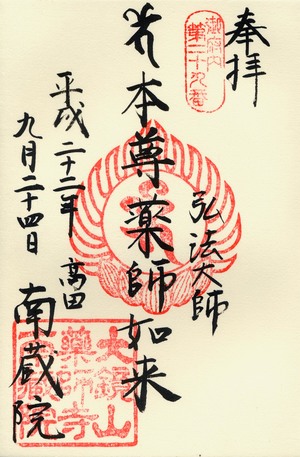 奉拝
御府内
第二十九番
弘法大師
本尊薬師如来
平成二十二年
九月二十四日
高田
南蔵院
大鏡山
薬師寺
南蔵院